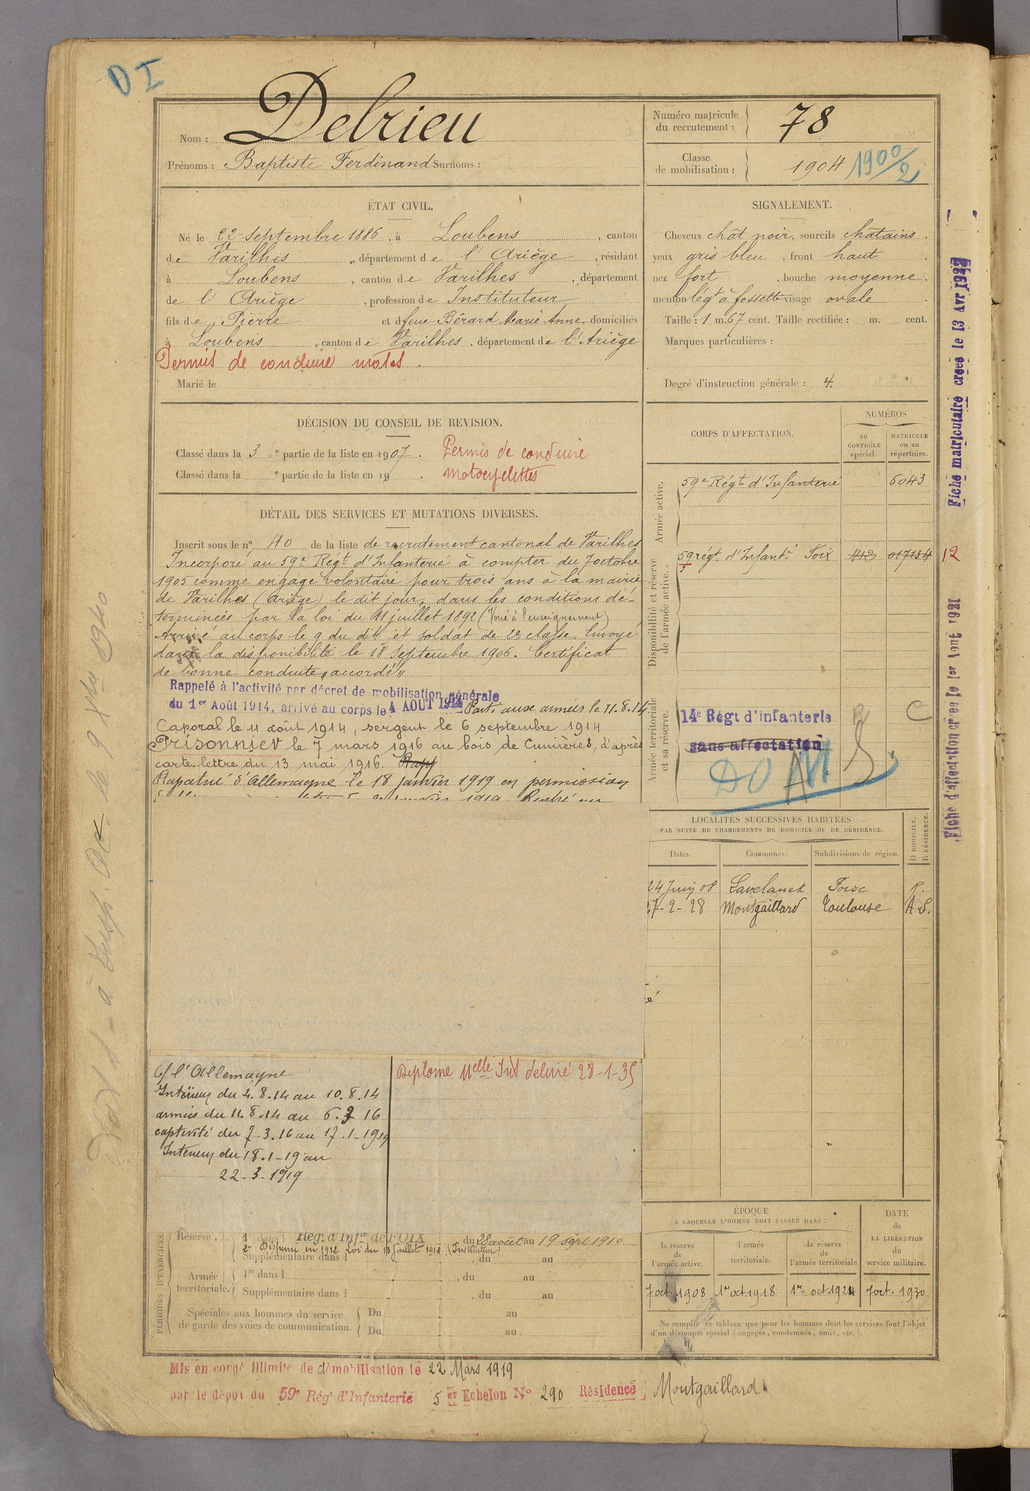 DI
Nom : Delrieu
Prénoms : Baptiste Ferdinand Surnoms :
Numéro matricule du recrutement : 78
Classe de mobilisation : 1904 1900/2
ÉTAT CIVIL.
Né le 22 Septembre 1886, à Loubens, canton
de Varilhes, département de l'Ariège, résidant
à Loubens, canton de Varilhes, département
de l'Ariège, profession de Instituteur
fils de Pierre et de feue Bérard Marie Anne, domiciliés
à Loubens, canton de Varilhes, département de l'Ariège
Permis de conduire motos.
Marié le
SIGNALEMENT.
Cheveux chât noir, sourcils chatains
yeux gris bleu, front haut
nez fort, bouche moyenne
menton légt à fossette visage ovale
Taille : 1 m. 67 cent. Taille rectifiée : m. cent.
Marques particulières :
Degré d'instruction générale : 4.
DÉCISION DU CONSEIL DE REVISION.
Classé dans la 3e partie de la liste en 1907. Permis de conduire
Classé dans la e partie de la liste en 19 . motocyclettes
DÉTAIL DES SERVICES ET MUTATIONS DIVERSES.
Inscrit sous le n° 40 de la liste de recrutement cantonal de Varilhes
Incorporé au 59e Régt d'Infanterie à compter du 7 octobre
1905 comme engagé volontaire pour trois ans à la mairie
de Varilhes (Ariège) le dit jour, dans les conditions dé-
terminées par la loi du 11 juillet 1892 (Voué à l'enseignement)
Arrivé au corps le 9 du dit et soldat de 2e classe. Envoyé
dans la disponibilité le 18 Septembre 1906. Certificat
de bonne conduite "accordé"
Rappelé à l'activité par décret de mobilisation générale
du 1er Août 1914, arrivé au corps le 4 AOUT 1914 Parti aux armées le 11.8.14
Caporal le 11 août 1914, sergent le 6 septembre 1914
Prisonnier le 7 mars 1916 au bois de Cumières, d'après
carte-lettre du 13 mai 1916. Rap
Rapatrié d'Allemagne le 18 janvier 1919 en permission
c/ l'Allemagne
Intérieur du 4.8.14 au 10.8.14
armées du 11.8.14 au 6.3 16
captivité du 7.3.16 au 17.1.1919
Intérieur du 18.1.19 au
22-3-1919
Diplome Melle Inst délivré 28-1-35
CORPS D'AFFECTATION.
NUMÉROS
au CONTRÔLE spécial.
MATRICULE ou au répertoire.
Armée active.
59e Régt d'Infanterie 6043
Disponibilité et réserve de l'armée active.
59 régt d'Infantie Foix 412 017134 12
Armée territoriale et sa réserve.
14e Régt d'infanterie C
sans affectation
DO
LOCALITÉS SUCCESSIVES HABITÉES
PAR SUITE DE CHANGEMENTS DE DOMICILE OU DE RÉSIDENCE.
Dates. Communes. Subdivisions de région. D DOMICILE. R RÉSIDENCE.
24 Juin 08 Lavelanet Foix R.
27-2-28 Montgaillard Toulouse A.D.
PÉRIODES D'EXERCICES.
Réserve. 1er dans l Rég. d'Infie de FOIX du 28 août au 19 sept 1910
2e Dispensé en 1912 Loi du 13 juillet 1912 (Instituteur)
Supplémentaire dans l , du au
Armée territoriale. 1er dans l , du au
Supplémentaire dans l , du au
Spéciales aux hommes du service de garde des voies de communication. Du au
Du au
ÉPOQUE
A LAQUELLE L'HOMME DOIT PASSER DANS :
la réserve de l'armée active. l'armée territoriale. la réserve de l'armée territoriale
DATE de LA LIBÉRATION du service militaire.
7 oct. 1908 1er oct 1918 1er oct 1924 7 oct. 1930
Ne remplir ce tableau que pour les hommes dont les services font l'objet
d'un décompte spécial (engagés, condamnés, omis, etc.).
Mis en congé illimité de démobilisation le 22 Mars 1919
par le dépôt du 59e Rég. d'Infanterie 5 er Echelon N° 290 Résidence Montgaillard
Fiche matriculaire créée le 13 Avr 1922
Fiche d'affectation créée le 1er Aout 1921